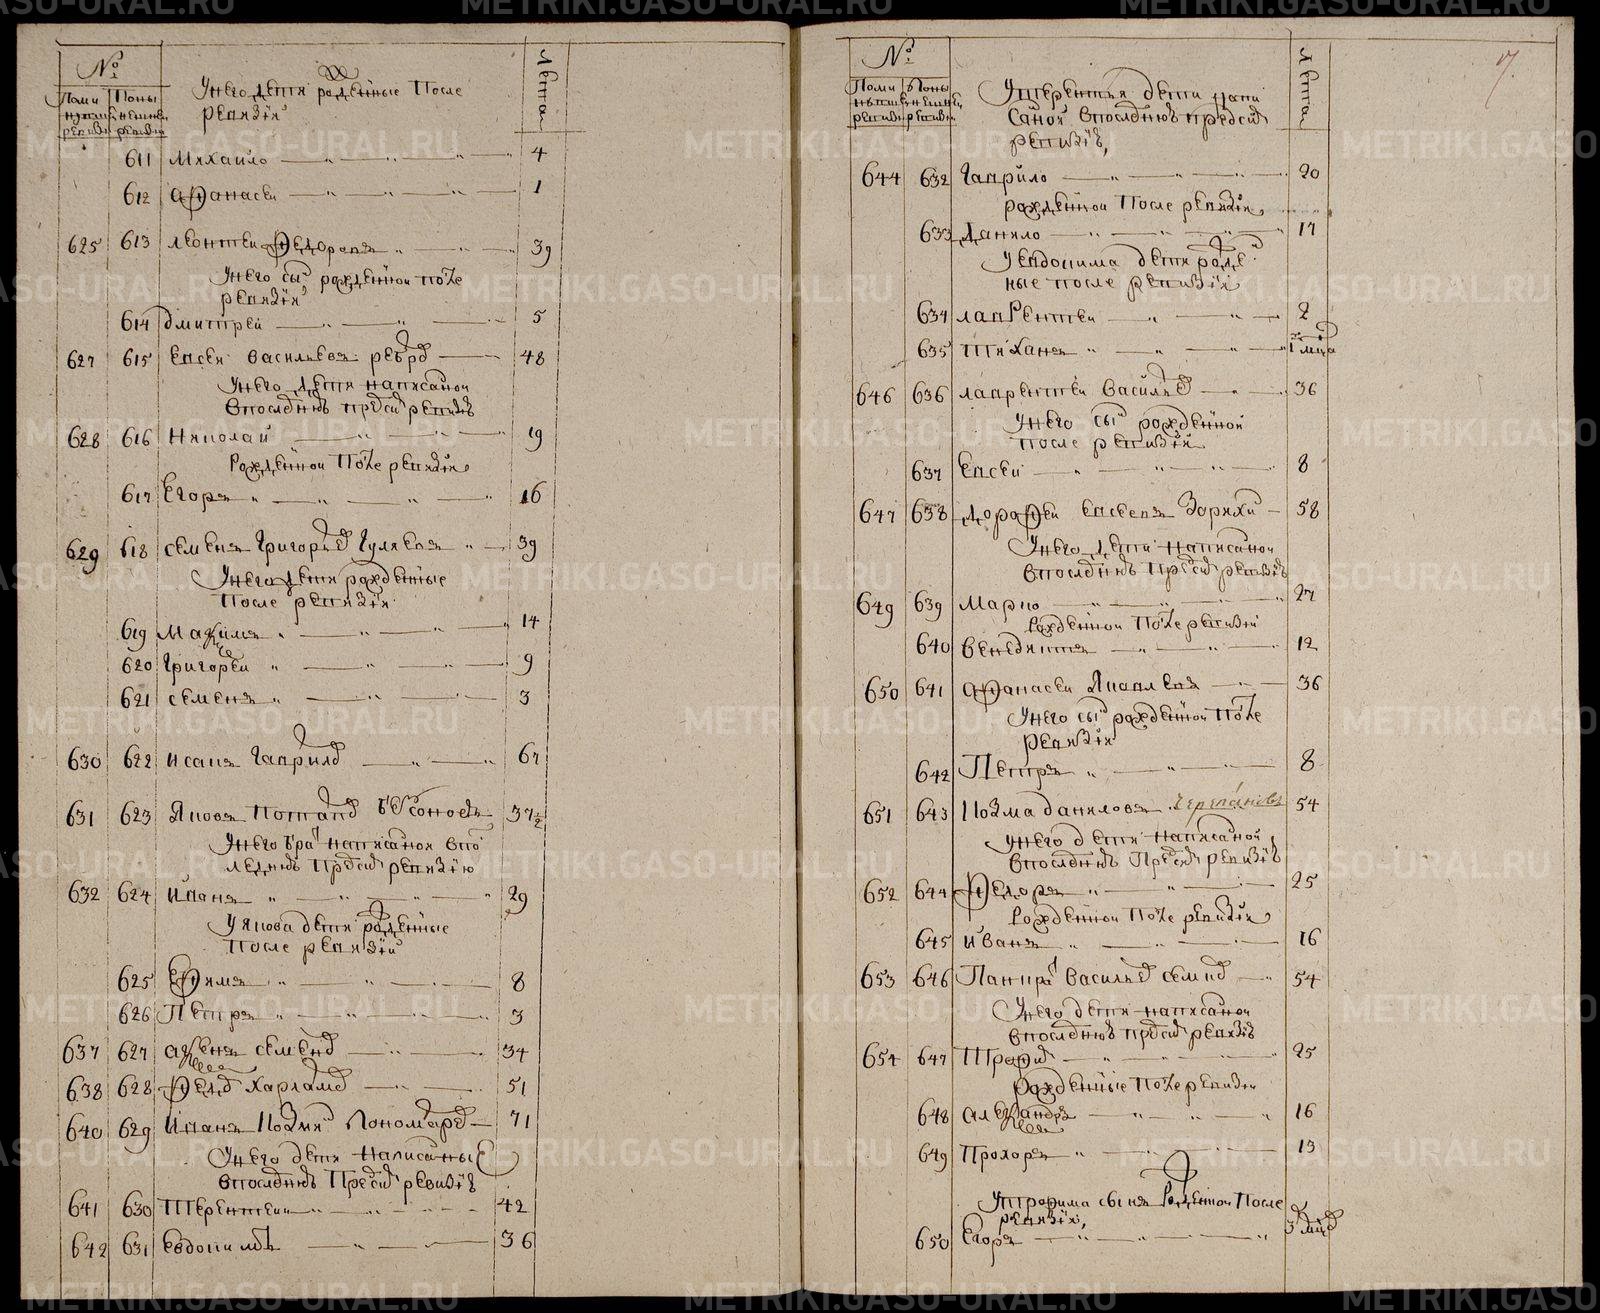 №
Лета
У него дети рожденные после
ревизии
611 Михайло 4
612 Афанасеи 1
625 613 Леонтеи Федоровъ 39
У него сын рожденной после
ревизии
614 Дмитреи 5
627 615 Евсеи Васильевъ 48
У него дети написаной
в последнюю пред сим ревизию
628 616 Николаи 19
Рожденной после ревизии
617 Егоръ 16
629 618 Семенъ Григорьев Гуляевъ 39
У него дети рожденные
после ревизии
619 Максимъ 14
620 Григореи 9
621 Семенъ 3
630 622 Исакъ Гаврилов 67
631 623 Яковъ Потапов 37½
У него брат написанои в по
следнюю пред сим ревизию
632 624 Иванъ 29
У Якова дети рожденные
после ревизии
625 Ефимъ 8
626 Петръ 3
637 627 Семенов 34
638 628 Федор Харламов 51
640 629 Иванъ Козмин Пономарев 71
У него дети написаные
в последнюю пред сим ревизию
641 630 Терентеи 42
642 631 Евдокимъ 36
17
№
Лета
У Терентия дети напи
саной в последнюю пред сим
ревизию,
644 632 Гаврило 20
рожденной после ревизии
633 Данило 17
У Евдокима дети рожден
ные после ревизии
634 Лаврентеи 2
635 Тиханъ
646 636 Лаврентеи Васильев 36
У него сын рожденной
после ревизии
637 Евсеи 8
647 638 Дорофеи Евсевъ 58
У него дети написаной
в последнюю пред сим ревизию
649 639 Марко 27
Рожденной после ревизии
640 Венедиктъ 12
650 641 Афанасеи Яковлевъ 36
У него сын рожденной после
ревизии
642 Петръ 8
651 643 Козма Даниловъ Черепановъ 54
У него дети написаной
в последнюю пред сим ревизию
652 644 Федоръ 25
Рожденной после ревизии
645 Иванъ 16
653 646 Панкрат Васильев Семков 54
У него дети написаной
в последнюю пред сим ревизию
654 647 Трофим 25
Рожденные после ревизии
648 Александръ 16
649 Прохоръ 13
У Трофима сынъ рожденной после
ревизии,
650 Егоръ
METRIKI.GASO-URAL.RU